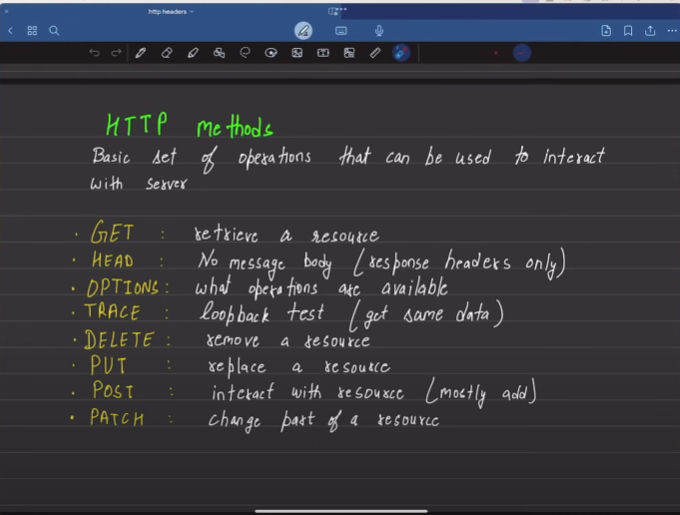 http headers
HTTP methods
Basic set of operations that can be used to interact
with server
• GET : retrieve a resource
• HEAD : No message body (response headers only)
• OPTIONS : what operations are available
• TRACE : loopback test (get same data)
• DELETE : remove a resource
• PUT : replace a resource
• POST : interact with resource (mostly add)
• PATCH : change part of a resource